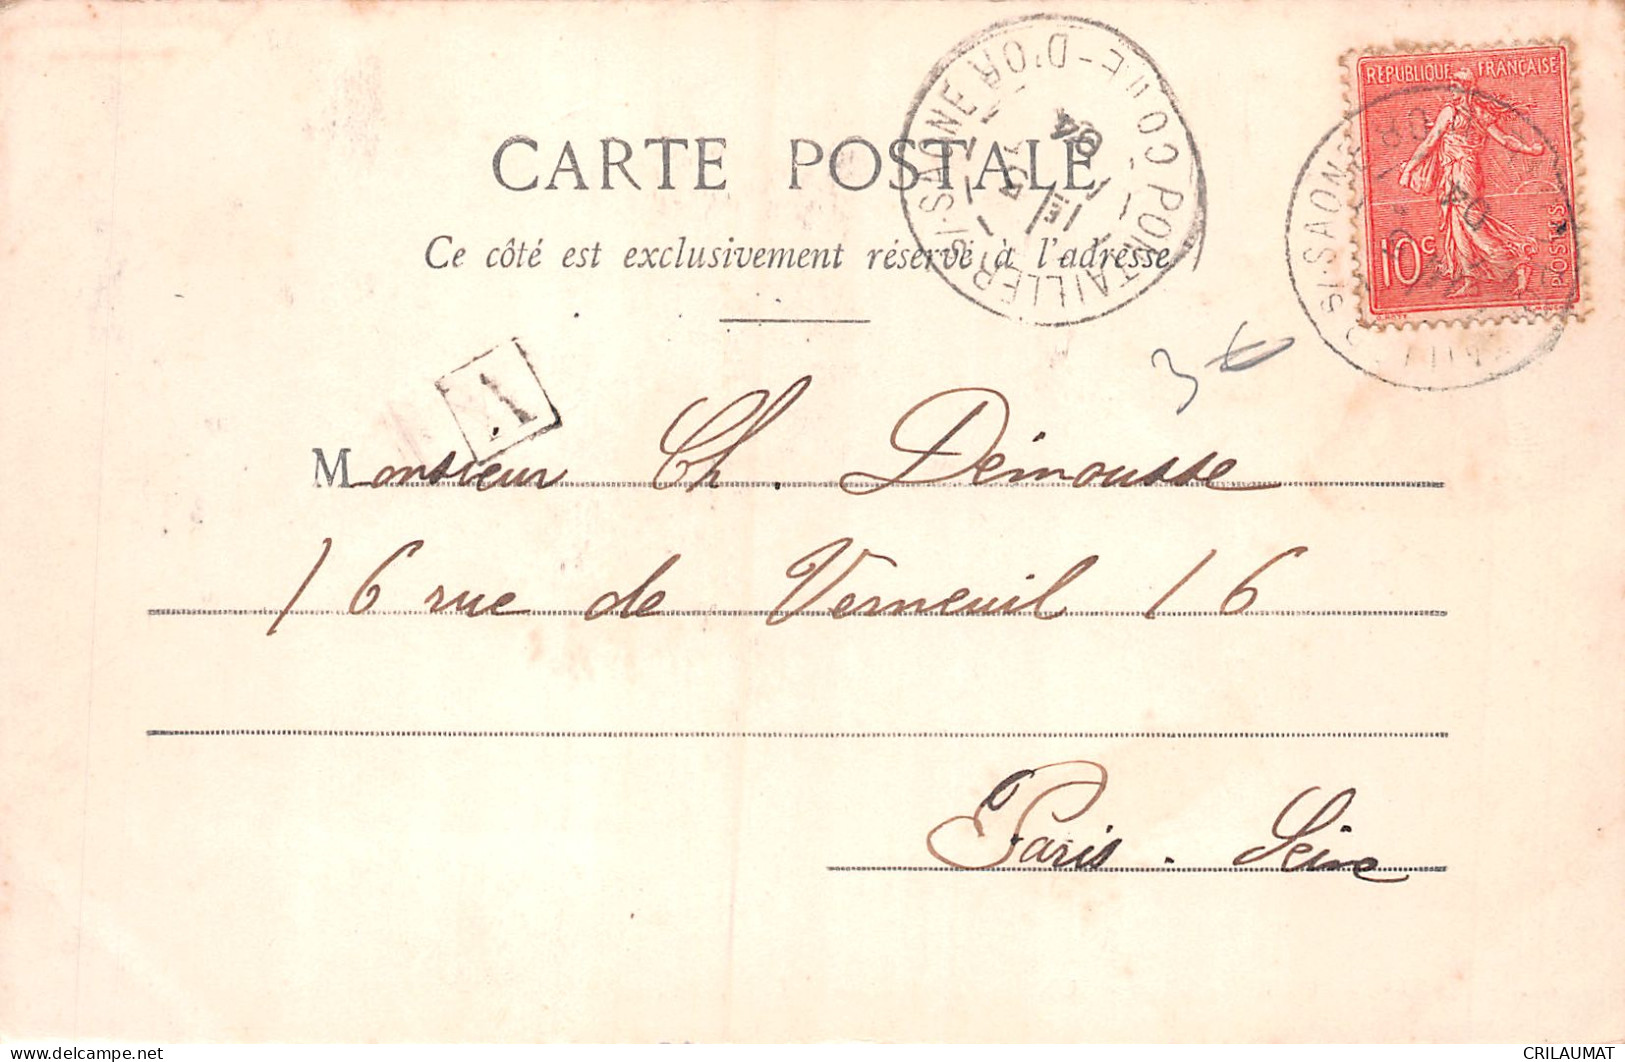 CARTE POSTALE
Ce côté est exclusivement réservé à l'adresse
PONTAILLER-S/-SAONE COTE-D'OR
1E
04
REPUBLIQUE FRANÇAISE
10c
POSTES
S/-SAONE
04
A
3 €
Monsieur Ch. Démousse
16 rue de Verneuil 16
Paris. Seine
CRILAUMAT